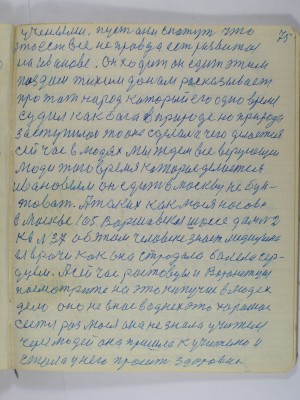 учеными, пусть они скажут что
это есть все не правда есть развитом
на Иванове. Он ходит он сидит этим
поздним тихим домам рассказывает
про тот народ который его одно время
судил как бога в природе но природа
заступилась то он сделал и чего делается
сейчас в людях мы ждем все верующии
люди того время которое делается
Ивановым он едит в Москву не бун-
товат. А таких как моя Носова
в Москве 105 Варшавское шоссе дом 2
кв N 37 об этом человеке знает медицина
и врачи как она страдала болела сер-
дцем. А сейчас
посмотрите на это получие в людех
дело оно не в нас в одних это хорошее
есть раз моя она не знала учителя
через людей она пришла к учителю и
стала у него просить здоровия
75